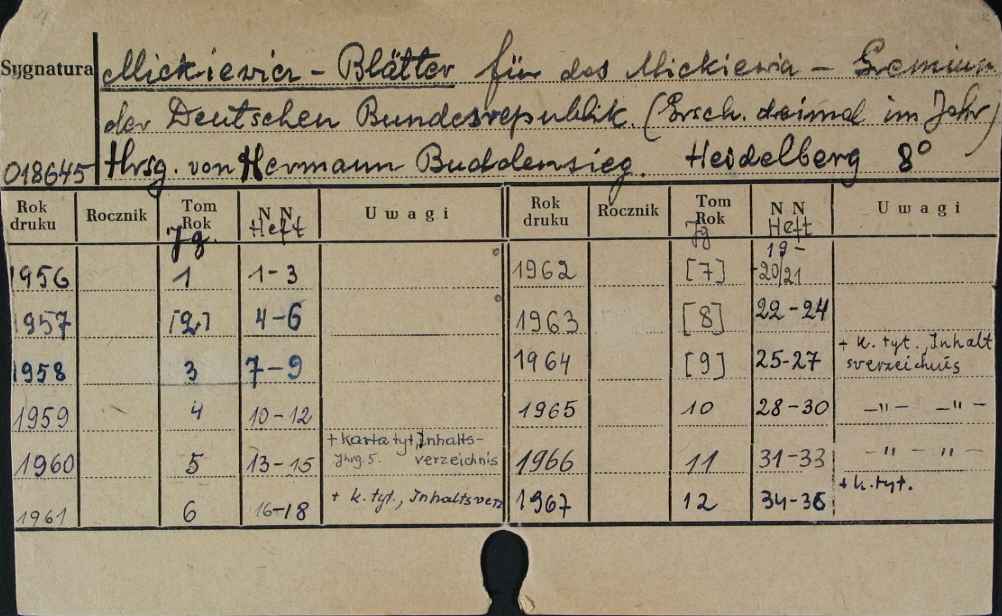 Sygnatura
Mickiewicz - Blätter für das Mickiewicz - Gremium
der Deutschen Bundesrepublik. (Ersch. dreimal im Jahr)
018645 Hrsg. von Hermann Buddensieg. Heidelberg 8°
Rok druku Rocznik Tom Rok Jg. N N Heft Uwagi Rok druku Rocznik Tom Rok Jg N N Heft Uwagi
1956 1 1-3 1962 [7] 19-20/21
1957 [2] 4-6 1963 [8] 22-24
1958 3 7-9 1964 [9] 25-27 + k. tyt., Inhaltsverzeichnis
1959 4 10-12 1965 10 28-30 -"- -"-
1960 5 13-15 + karta tyt., Inhalts- Jhrg 5. verzeichnis 1966 11 31-33 -"- -"-
1961 6 16-18 + k. tyt., Inhaltsverz 1967 12 34-36 + k. tyt.